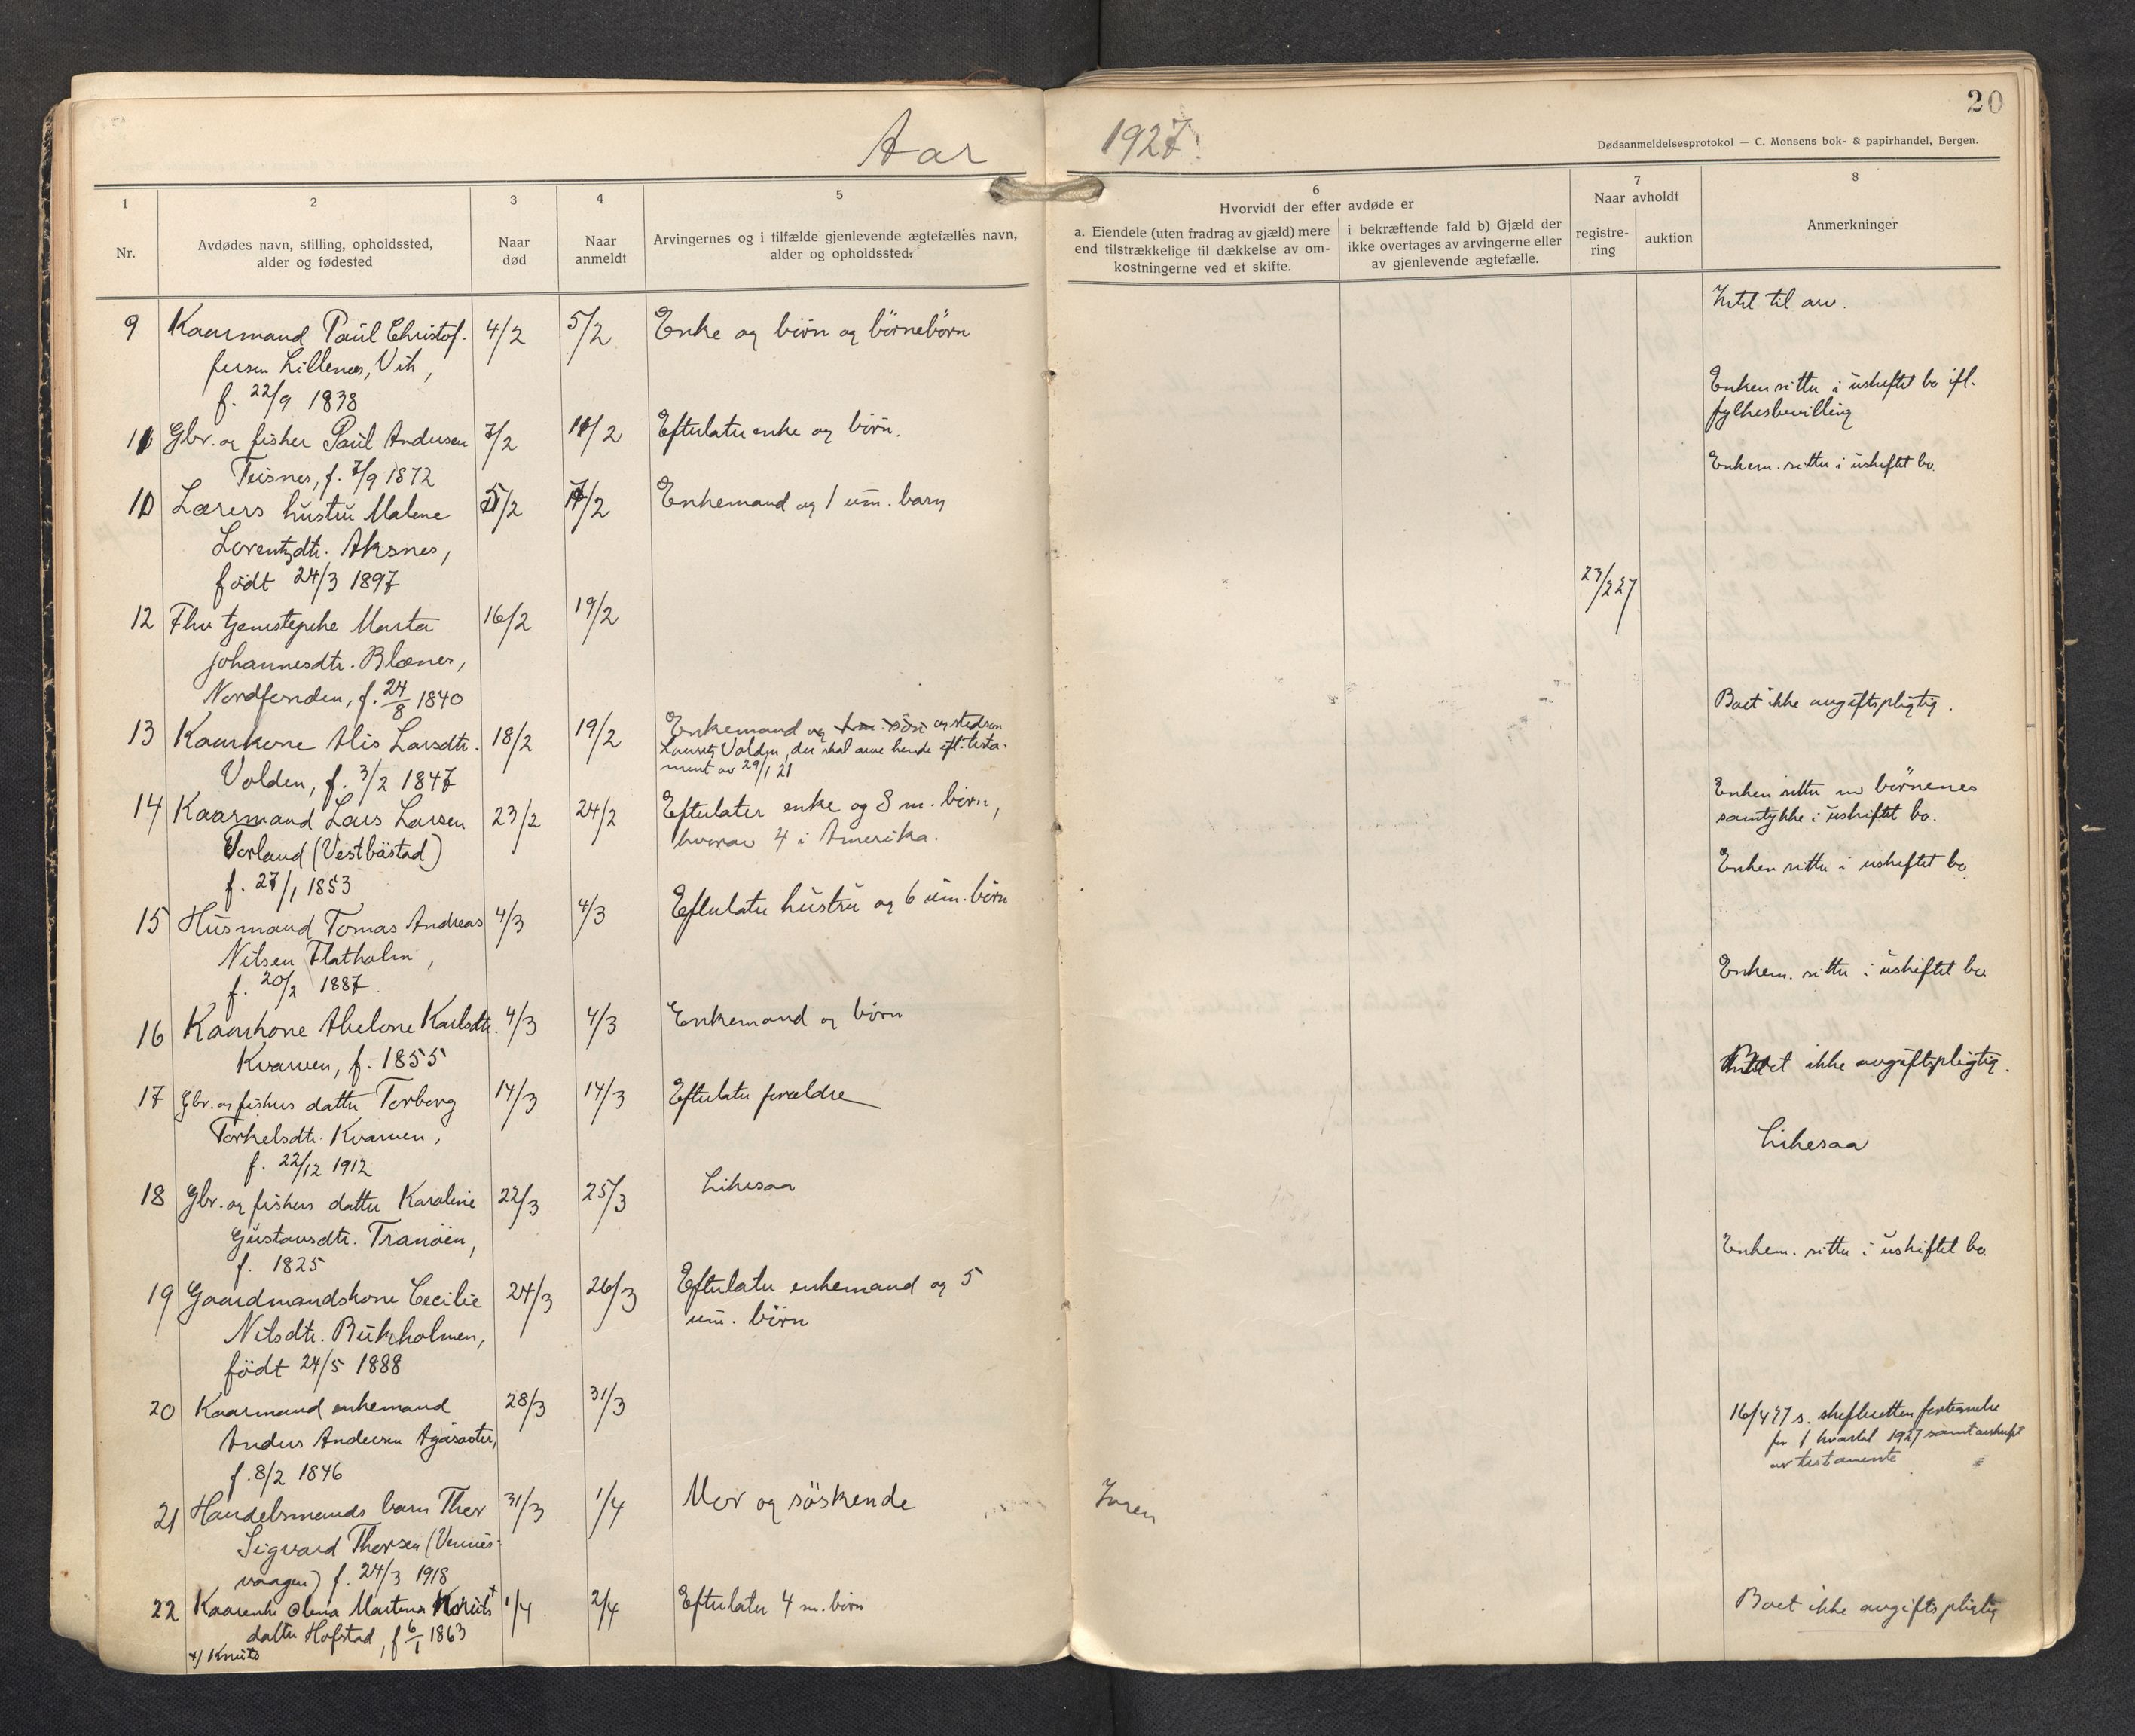 Aar 1927.
20
Dødsanmeldelsesprotokol — C. Monsens bok- & papirhandel, Bergen.
1
Nr.
2
Avdødes navn, stilling, opholdssted,
alder og fødested
3
Naar
død
4
Naar
anmeldt
5
Arvingernes og i tilfælde gjenlevende ægtefælles navn,
alder og opholdssted.
6
Hvorvidt der efter avdøde er
a. Eiendele (uten fradrag av gjæld) mere
end tilstrækkelige til dækkelse av om-
kostningerne ved et skifte.
i bekræftende fald b) Gjæld der
ikke overtages av arvingerne eller
av gjenlevende ægtefælle.
7
Naar avholdt
registre-
ring
auktion
8
Anmerkninger
9 Kaarmand Paul Christof- 4/2 5/2 Enke og børn og børnebørn
fersen Lillenes, Vik,
f. 22/9 1838
Intet til arv.
11 Gbr. og fisker Paul Andersen 7/2 11/2 Efterlater enke og børn.
Teisnes, f. 7/9 1872
Enken sitter i uskiftet bo ifl.
fylkesbevilling
10 Lærers hustru Malene 5/2 7/2 Enkemand og 1 um. barn
Lorentzdtr. Aksnes,
født 24/3 1897
Enkem. sitter i uskiftet bo.
12 Fhv tjenstepike Marta 16/2 19/2 23/2 27
Johannesdtr. Blænes,
f. 24/8 1840
13 Kaarkone Alis Larsdtr. 18/2 19/2 Enkemand og stedsøn
Volden, f. 3/2 1847
Lauritz Volden, der skal arve hende ifl. testa-
ment av 29/1 21
Boet ikke avgiftspligtig.
14 Kaarmand Lars Larsen 23/2 24/2 Efterlater enke og 8 m. børn,
(Vestbøstad) hvorav 4 i Amerika.
f. 27/1 1853
Enken sitter m børnenes
samtykke i uskiftet bo.
15 Husmand Tomas Andreas 4/3 4/3 Efterlater hustru og 6 um. børn
Nilsen Flatholm,
f. 20/2 1887
Enken sitter i uskiftet bo.
16 Kaarkone Abelone Karlsdtr. 4/3 4/3 Enkemand og børn
Kvarven, f. 1855
Enkem. sitter i uskiftet bo
17 Gbr. og fiskers datter Torborg 14/3 14/3 Efterlater forældre
Torkelsdtr. Kvarven,
f. 22/12 1912
Boet ikke avgiftspligtig.
18 Gbr. og fiskers datter Karoline 22/3 25/3 Likesaa
Gustavsdtr. Tranøen,
f. 1825
Likesaa
19 Gaardmandskone Cecilie 24/3 26/3 Efterlater enkemand og 5
Nilsdtr. Bukholmen, um. børn
født 24/5 1888
Enkem. sitter i uskiftet bo.
20 Kaarmand enkemand 28/3 31/3
Anders Andersen Agasøster,
f. 8/2 1846
16/4 27 s. skifteretten fortegnelse
for 1 kvartal 1927 samt avskrift
av testamente
21 Handelsmands barn Thor 31/3 1/4 Mor og søskende
Sigvard Thorsen (Vennes-
vaagen) f. 24/3 1918
22 Kaarenke Olena Martena 1/4 2/4 Efterlater 4 m. børn
datter Hofstad, f 6/1 1863
x) Knuts
Boet ikke avgiftspligtig